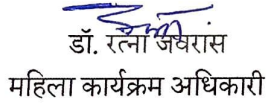 डॉ. रत्ना जवरास
महिला कार्यक्रम अधिकारी